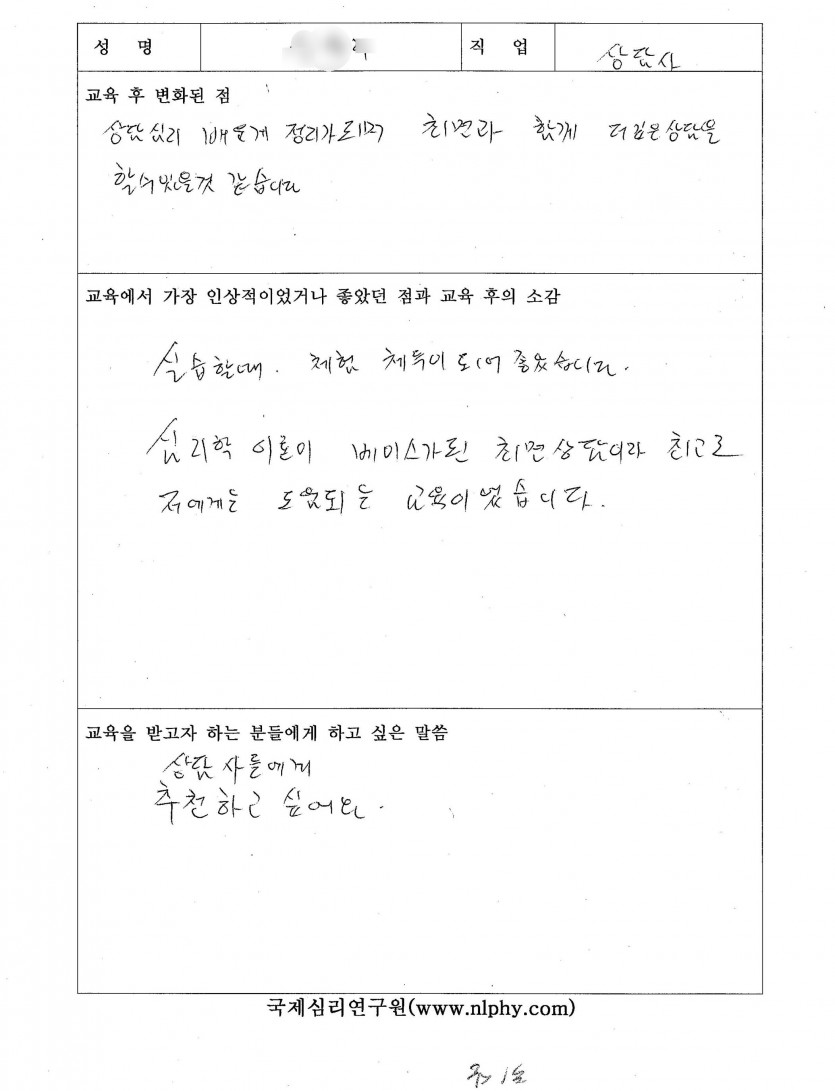 성 명 직 업 상담사
교육 후 변화된 점
상담심리 배운게 정리가되며 최면과 함께 더깊은상담을
할수있을것 같습니다
교육에서 가장 인상적이었거나 좋았던 점과 교육 후의 소감
실습할때. 체험 체득이 되어 좋았습니다.
심리학 이론이 베이스가된 최면상담이라 최고로
저에게는 도움되는 교육이었습니다.
교육을 받고자 하는 분들에게 하고 싶은 말씀
상담사들에게
추천하고 싶어요.
국제심리연구원(www.nlphy.com)